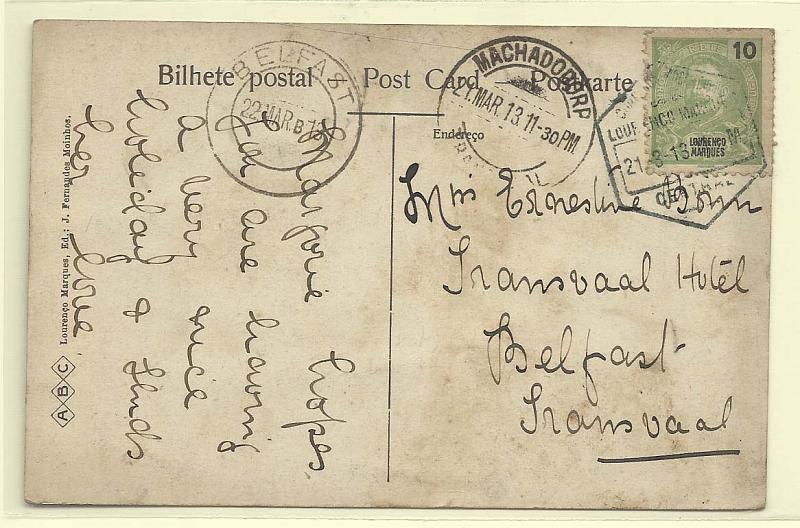 Bilhete postal Post Card Postkarte
Endereço
BELFAST
22 MAR. B 13
MACHADODORP
MAR. 13. 11-30 PM.
LOURENÇO MARQUES
21-3-13
CENTRAL
10
LOURENÇO
MARQUES
Marjorie hopes
you are having
a very nice
holiday & sends
her love.
Miss Ernestine
Transvaal Hotêl
Belfast
Transvaal
A B C Lourenço Marques, Ed.: J. Fernandes Moinhos.